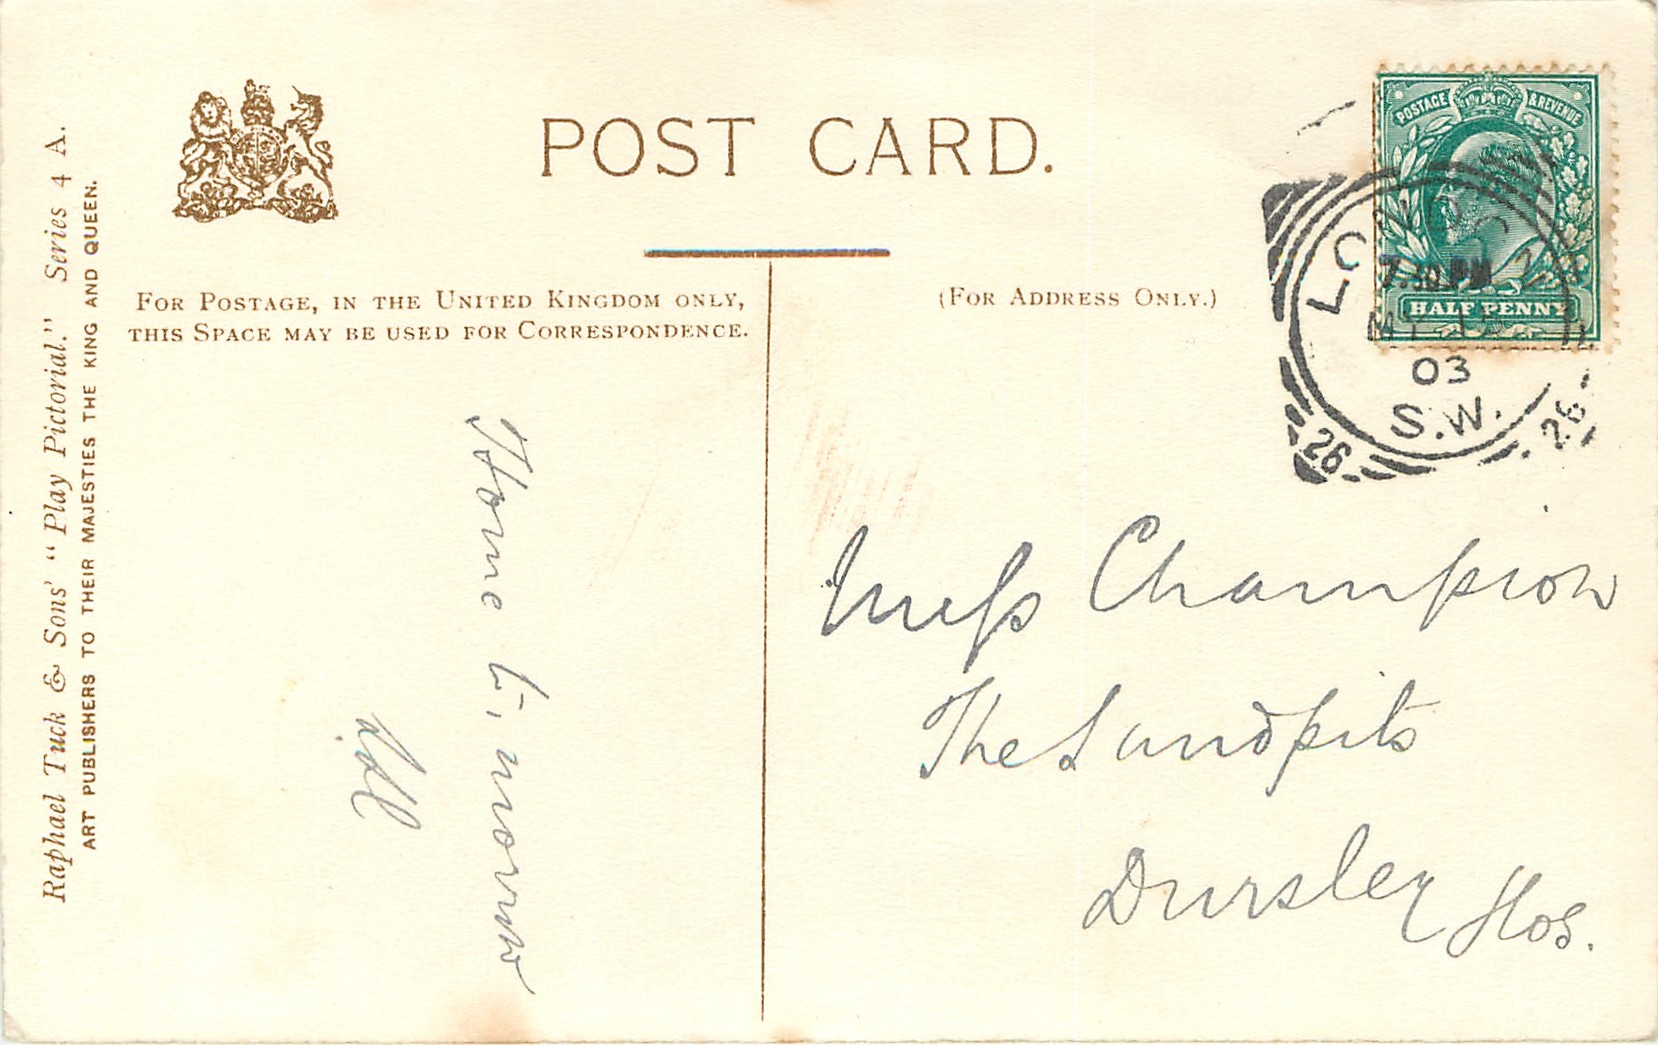 POST CARD.
FOR POSTAGE, IN THE UNITED KINGDOM ONLY,
THIS SPACE MAY BE USED FOR CORRESPONDENCE.
(FOR ADDRESS ONLY.)
Raphael Tuck & Sons' "Play Pictorial." Series 4 A.
ART PUBLISHERS TO THEIR MAJESTIES THE KING AND QUEEN.
POSTAGE & REVENUE
HALF PENNY
LONDON
7.30 PM
03
S.W.
26 26
Home to, morrow
Miss Champion
The Sandpits
Dursley Glos.